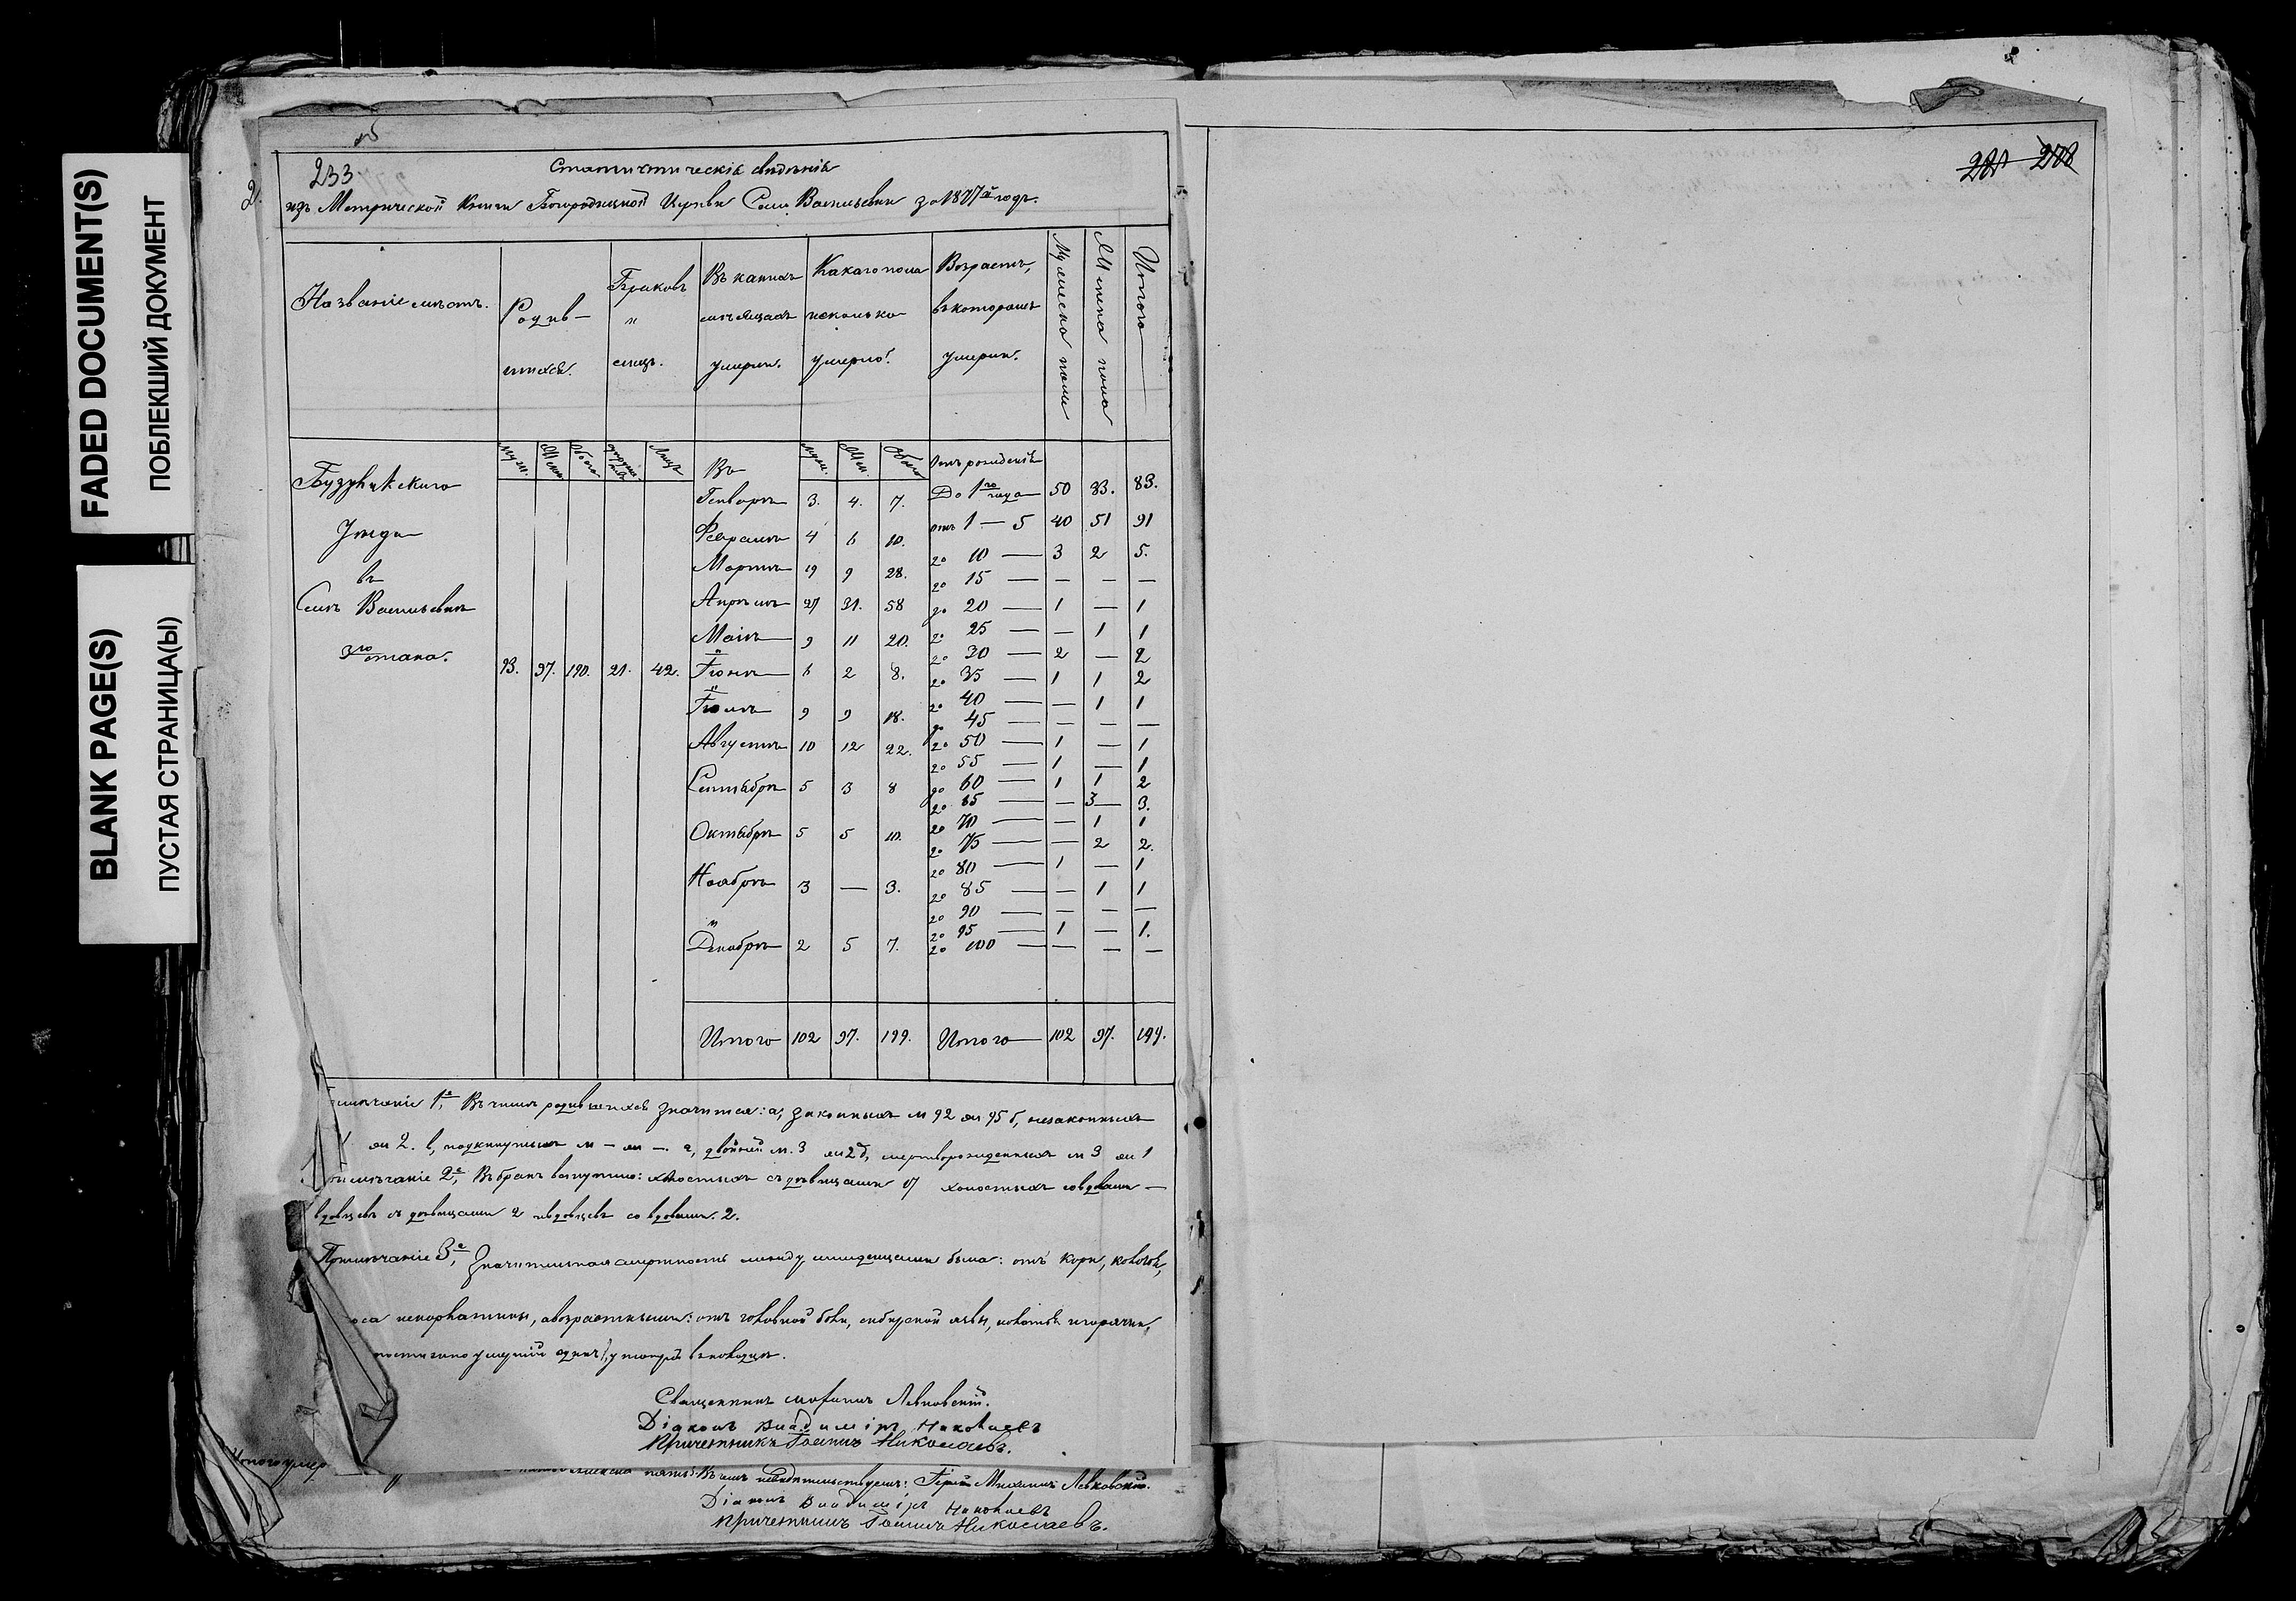 FADED DOCUMENT(S)
ПОБЛЕКШИЙ ДОКУМЕНТ
BLANK PAGE(S)
ПУСТАЯ СТРАНИЦА(Ы)
233
Статистическія свѣдѣнія
изъ Метрической Книги Богородицкой Церкви Села Васильевки за 1877й годъ.
Названіе мѣстъ. Родив- Браковъ Въ какихъ Какаго пола Возрастъ, Мужеска пола Женска пола Итого
" мѣсяцахъ и сколько въ которомъ
шихся. лицъ. умерли. умерло. умерли.
Муж. Жен. Обоего Лицъ Въ Муж. Жен. Обоего Отъ рожденія
Генварѣ 3. 4. 7. До 1го года 50 33. 83.
Бузулукскаго
Февралѣ 4 6 10. отъ 1 — 5 40 51 91
Уѣзда
Мартѣ 19 9 28. до 10 — 3 2 5.
въ
до 15 — — — —
Селѣ Васильевкѣ
Апрѣлѣ 27 31. 58 до 20 — 1 — 1
до 25 — — 1 1
Маіѣ 9 11 20. до 30 — 2 — 2
3го стана.
93. 97. 190. 21. 42. Іюнѣ 6 2 8. до 35 — 1 1 2
до 40 — — 1 1
Іюлѣ 9 9 18. до 45 — — — —
Августѣ 10 12 22. до 50 — 1 — 1
до 55 — 1 — 1
Сентябрѣ 5 3 8 до 60 — 1 1 2
до 65 — — 3 — 3.
до 70 — — 1 1
Октябрѣ 5 5 10. до 75 — — 2 2.
до 80 — 1 — 1
Ноябрѣ 3 — 3. до 85 — — 1 1
до 90 — — — —
до 95 — 1 — 1.
Декабрѣ 2 5 7. до 100 — — — —
Итого 102 97. 199. Итого 102 97. 199.
1е, Въ числѣ родившихся значится: а, законныхъ м 92 ж 95 б, незаконныхъ
1 ж 2. в, подкинутыхъ м — ж —. г, двойней м. 3 ж 2 д, мертворожденныхъ м 3 ж 1
2е, Въ бракъ вступило: холостыхъ съ дѣвицами 17 холостыхъ со вдовами —
вдовцевъ съ дѣвицами 2 вдовцевъ со вдовами. 2.
Примѣчаніе 3е, Значительная смертность между младенцами была: отъ кори,
а возрастными: отъ головной боли, сибирской язвы, и горячки,
Священникъ Михаилъ Левковскій.
Діаконъ Владиміръ Николаевъ
Причетникъ Іоаннъ Николаевъ.
Итого умер
Въ чемъ свидѣтельствуемъ: Іерей Михаилъ Левковскій.
Діаконъ Владиміръ Николаевъ
Причетникъ Іоаннъ Николаевъ.